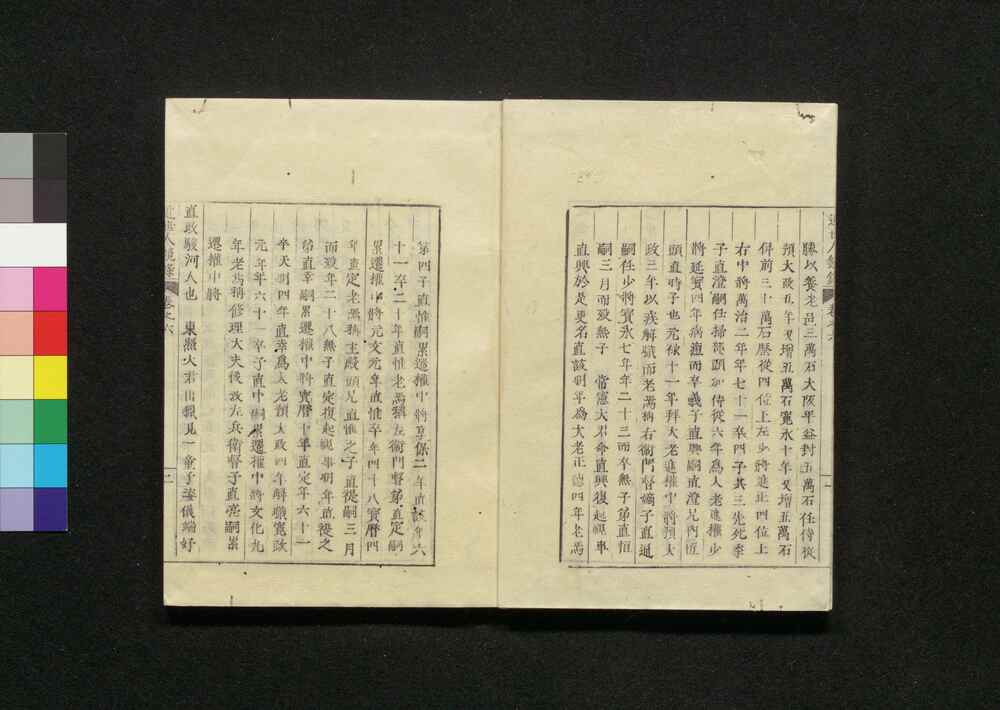 勝以養老邑三萬石大阪平益封五萬石任侍從
預大政五年又增五萬石寬永十年又增五萬石
併前三十萬石歷從四位上左少將進正四位上
右中將萬治二年年七十一卒四子其三先死季
子直澄嗣任掃部頭加侍從六年為大老進權少
將延寶四年病而卒義子直興嗣直澄兄
頭直時子也元祿十一年拜大老進權中將預大
政三年以疾解職而老焉稱右衛門督嫡子直通
嗣任少將寶永七年年二十三而卒無子第直恒
嗣三月而歿無子 常憲大君命直興復起視事
直興於是更名直該明年為大老正德四年老焉
第四子直惟嗣累遷權中將享保二年直該年六
十一卒二十年直惟老焉稱左衞門督第直定嗣
累遷權中將元文元年直惟卒年四十八寶曆四
年直定老焉稱主殿頭兄直惟之子直禔嗣三月
而歿年二十八無子直定復起視事明年直禔之
第直幸嗣累遷權中將寶曆十年直定年六十一
卒天明四年直幸爲大老預大政四年辭職寬政
元年年六十一卒子直中嗣累遷權中將文化九
年老焉稱修理大夫後改左兵衛督子直亮嗣累
遷權中將
直政駿河人也 東照大君出獵見一童子姿儀端好
卷之六
二